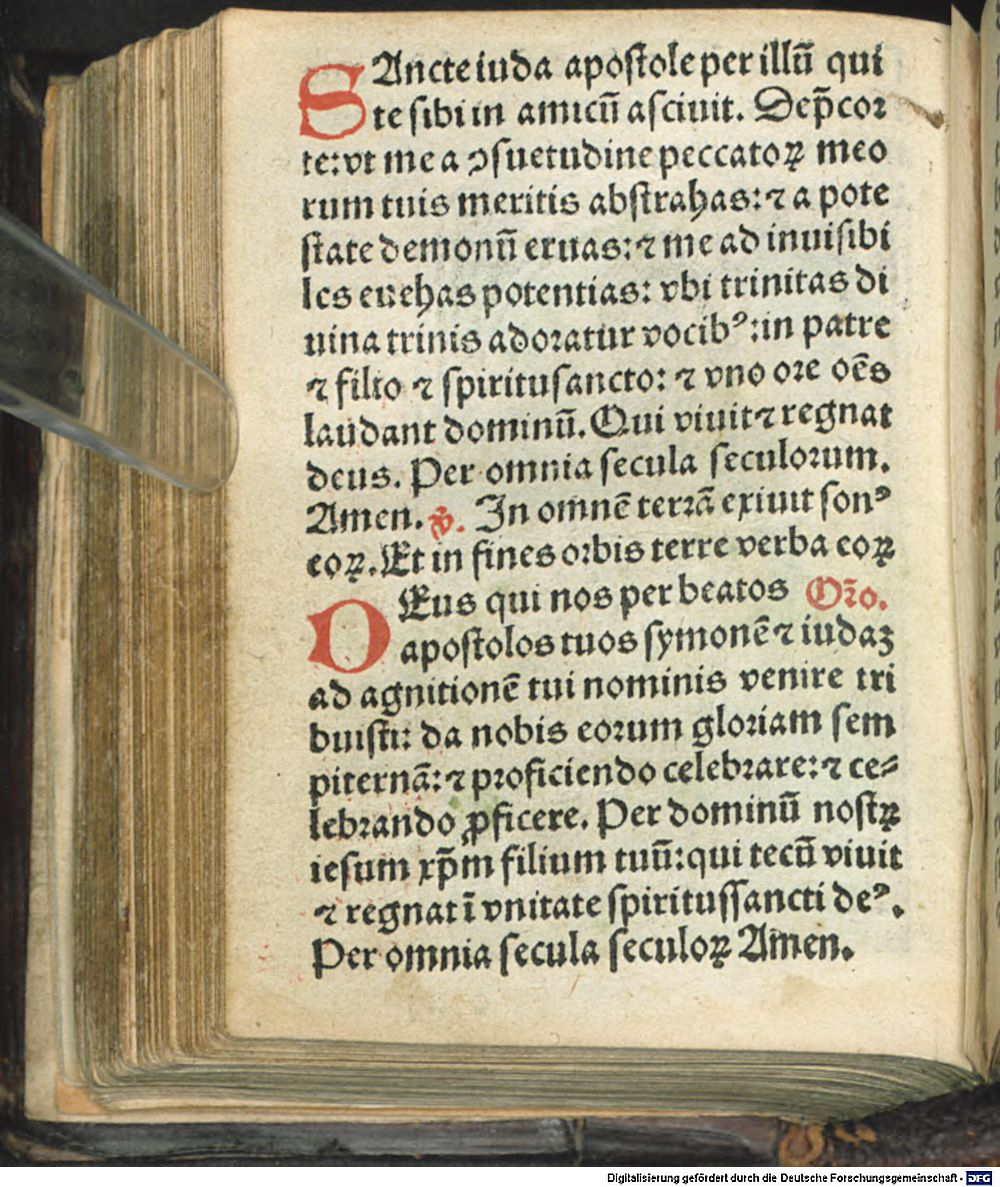 SAncte iuda apoſtole per illū qui
te ſibi in amicū aſciuit. Dep̄coꝛ
te: vt me a ꝯſuetudine peccatoꝝ meo
rum tuis meritis abſtrahas: ⁊ a pote
ſtate demonū eruas: ⁊ me ad inuiſibi
les euehas potentias: vbi trinitas di
uina trinis adoꝛatur vocibꝰ: in patre
⁊ filio ⁊ ſpirituſancto: ⁊ vno oꝛe oēs
laudant dominū. Qui viuit ⁊ regnat
deus. Per omnia ſecula ſeculoꝛum.
Amen. ℣. In omnē terrā exiuit ſonꝰ
eoꝝ. Et in fines oꝛbis terre verba eoꝝ
DEus qui nos per beatos Oꝛ̄o.
apoſtolos tuos ſymonē ⁊ iudaꝫ
ad agnitionē tui nominis venire tri
buiſti: da nobis eoꝛum gloꝛiam ſem
piternā: ⁊ pꝛoficiendo celebꝛare: ⁊ ce⸗
lebꝛando ꝓficere. Per dominū noſtꝝ
ieſum xp̄m filium tuū: qui tecū viuit
⁊ regnat ī vnitate ſpirituſſancti deꝰ.
Per omnia ſecula ſeculoꝝ Amen.
Digitalisierung gefördert durch die Deutsche Forschungsgemeinschaft - DFG